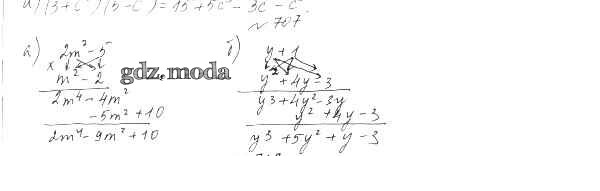 а) (3+c²)(5-c²) = 15+5c² - 3c² - c⁴.
№ 707
а) 2m² - 5
× m² - 2
2m⁴ - 4m²
- 5m² + 10
2m⁴ - 9m² + 10
gdz.moda
б) y + 1
y² + 4y - 3
y3 + 4y² - 3y
y² + 4y - 3
y3 + 5y² + y - 3